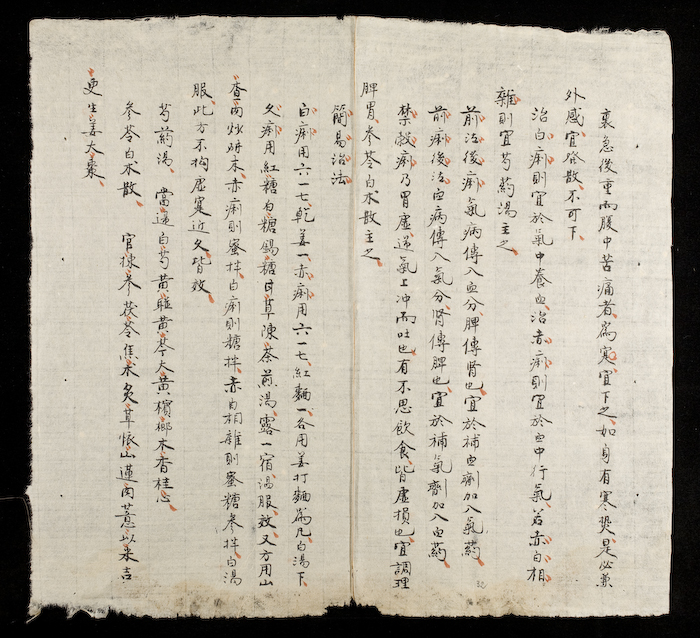 裏急後重而腹中苦痛者為寔宜下之如身有寒熱是必兼
外感宜發散不可下
治白痢則宜於氣中養血治赤痢則宜於血中行氣若赤白相
雜則宜芍葯湯主之
前泻後痢氣病傳入血分脾傳腎也宜於補血劑加入氣葯
前痢後泻血病傳入氣分腎傳脾也宜於補氣劑加入血葯
禁殺痢乃胃虛逆氣上冲而吐也有不思飲食皆虛損也宜調理
脾胃參苓白术散主之
簡易治法
白痢用六一七乾姜一赤痢用六一七紅麯一各用姜打麵為凡白湯下
久痢用紅糖白糖錫糖甘草陳茶煎湯露一宿湯服效又方用山
查肉炒研末赤痢則蜜拌白痢則糖拌赤白相雜則蜜糖參拌白湯
服此方不拘虛寔近久皆效
芍葯湯 當退白芍黃連黃芩大黃檳榔木香桂心
參苓白术散 官揀參茯苓焦术炙草怀山蓮肉薏以来吉
更生姜大棗